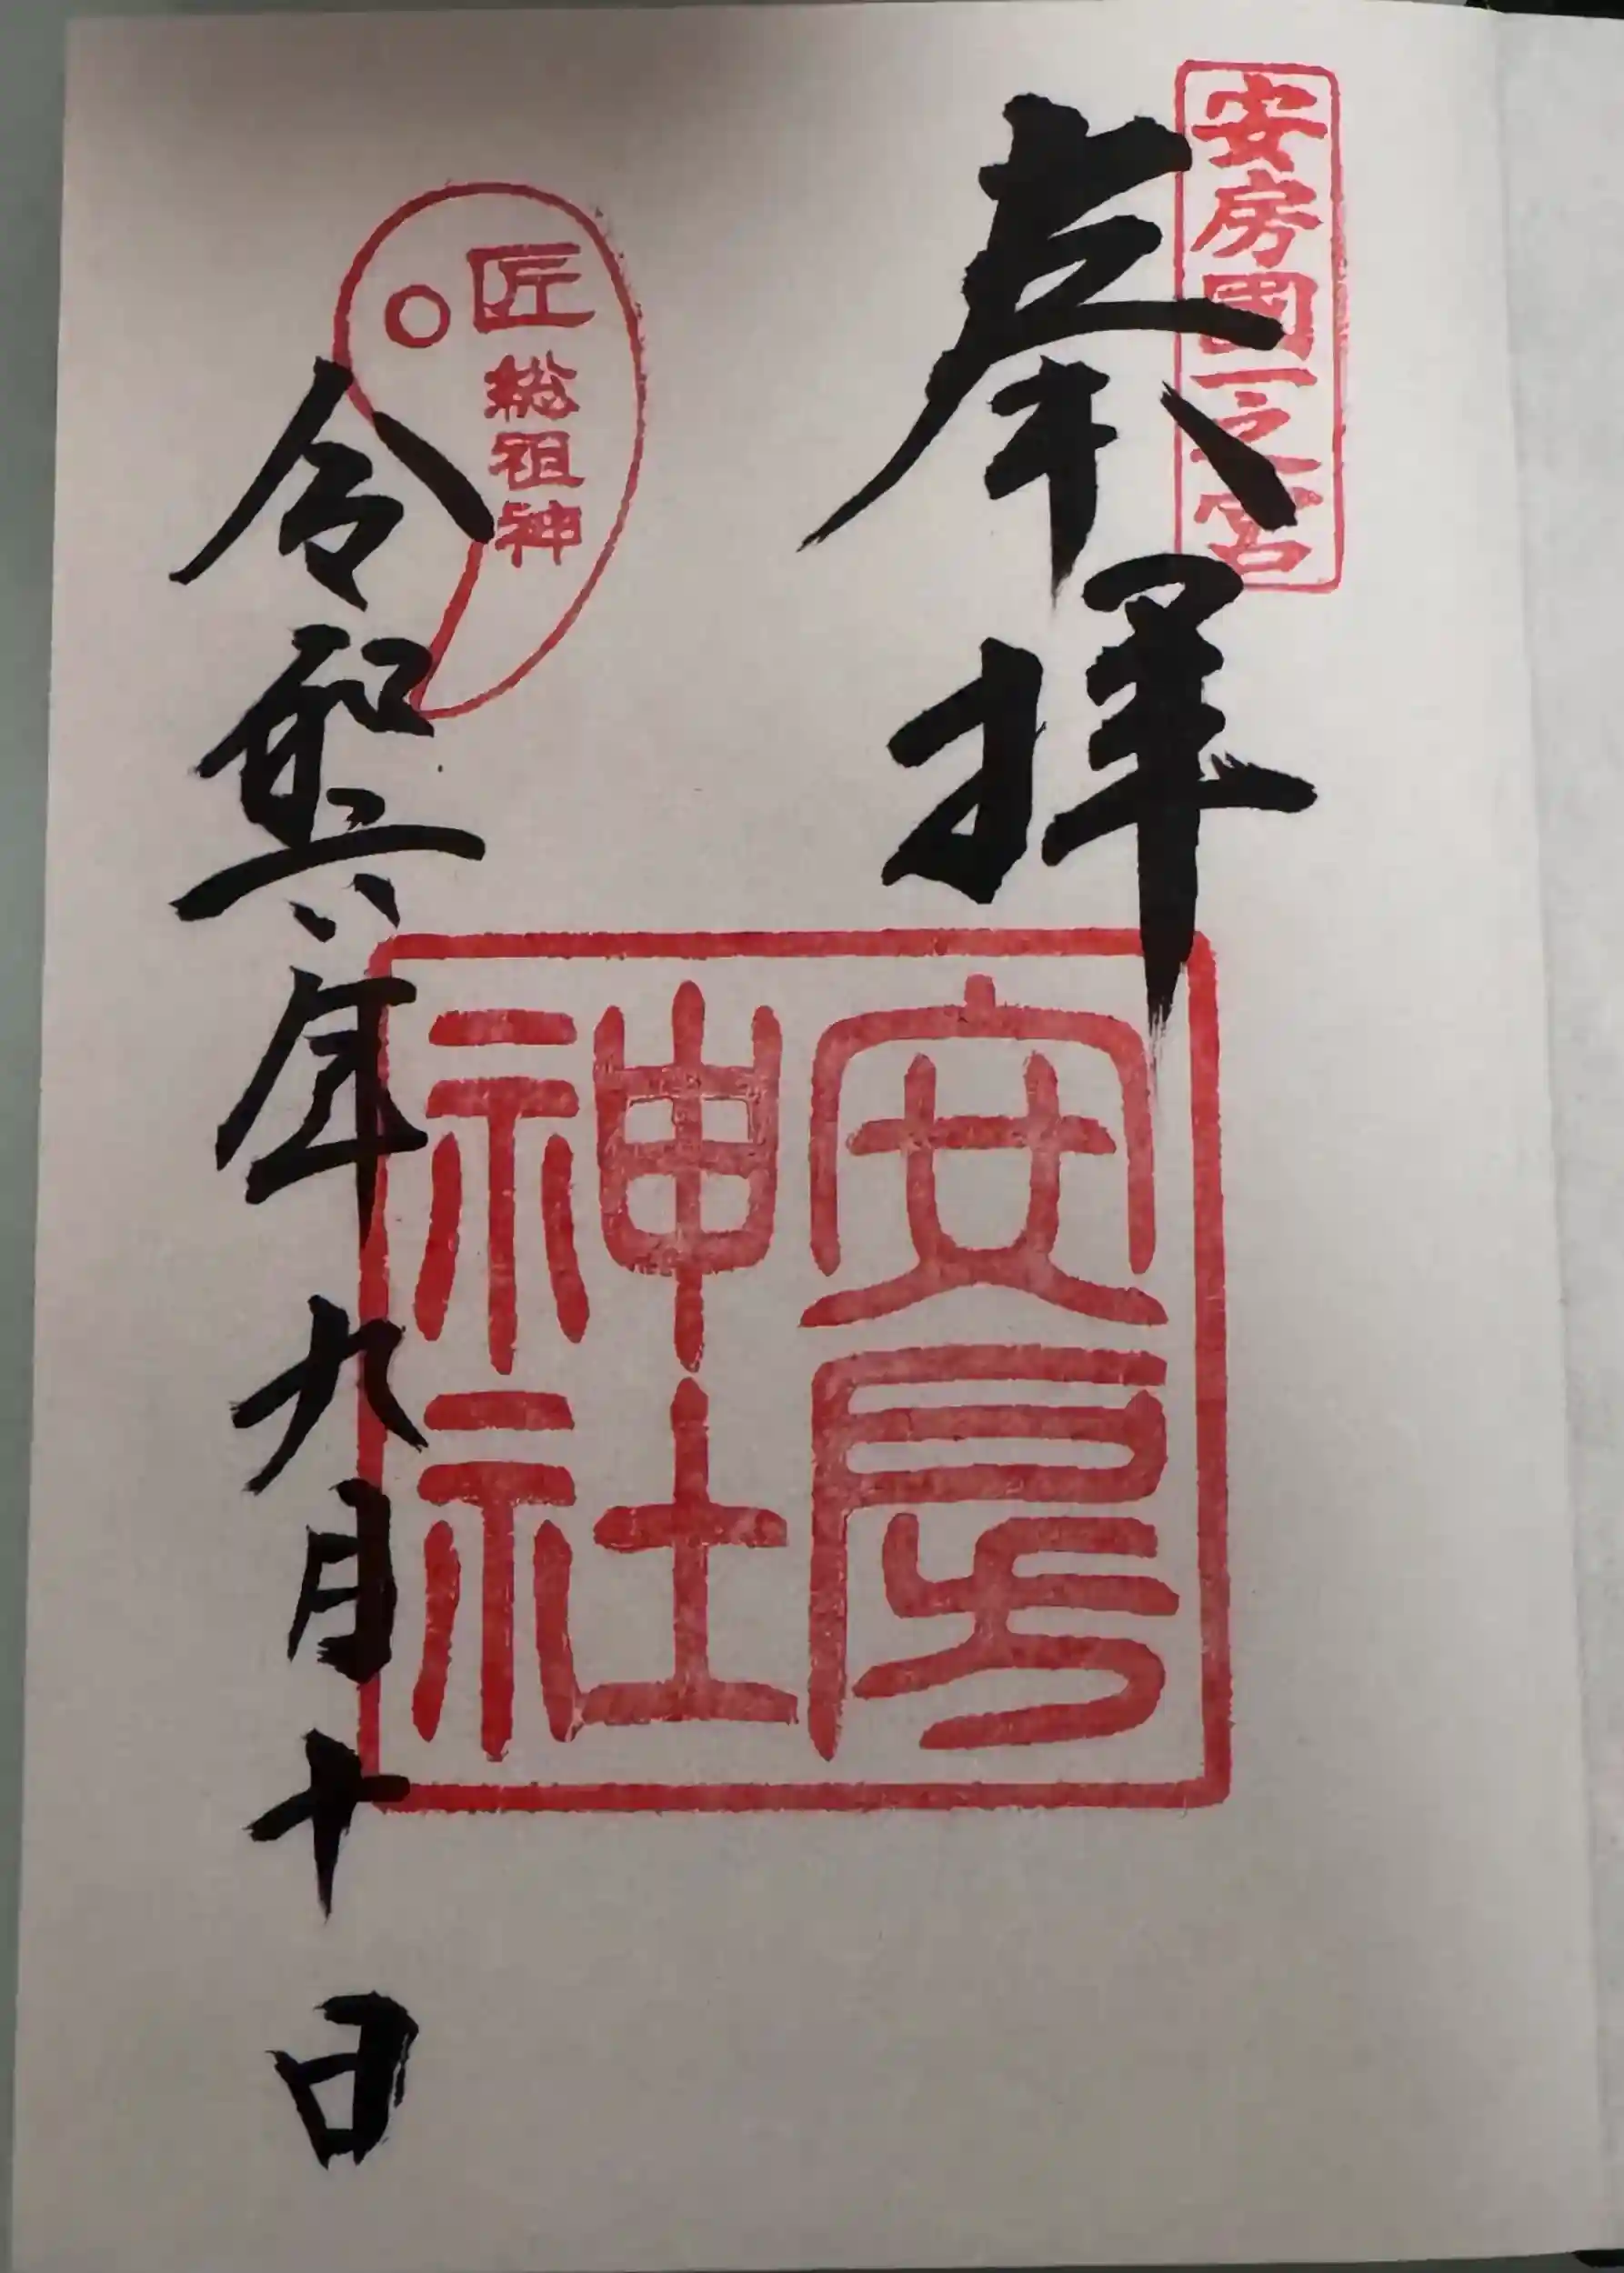 安房国一之宮
奉拝
安房
神社
匠 総祖神
令和六年九月十日